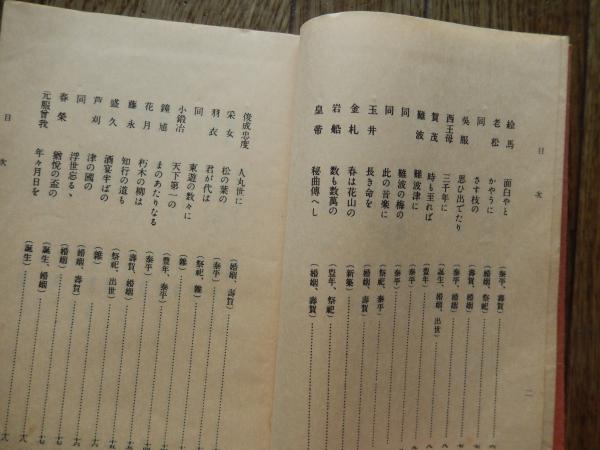 目次
二
絵馬 面白やと (泰平、壽賀)
老松 かやうに (婚姻、祭祀)
同 さす枝の (婚姻、壽賀)
呉服 思ひ出でたり (泰平、婚姻)
西王母 三千年に (誕生、婚姻、出世)
賀茂 時も至れば (豊年)
難波 難波津に (泰平)
同 難波の梅の (泰平)
同 此の音樂に (祭祀、泰平)
玉井 長き命を (婚姻、壽賀)
金札 春は花山の (新築)
岩船 数も数萬の (豊年、祭祀)
皇帝 秘曲傳へし (婚姻、壽賀)
俊成忠度 人丸世に (婚姻、壽賀)
采女 松の葉の (泰平)
羽衣 君が代は (祭祀、雜)
同 東遊の数々に (雜)
小鍛冶 天下第一の (豊年、泰平)
鐘馗 まのあたりなる (泰平)
花月 朽木の柳は (壽賀、婚姻)
藤永 知行の道も (祭祀、出世)
盛久 酒宴半ばの (雜)
芦刈 津の國の (婚姻、壽賀)
同 浮世忘るゝ (婚姻)
春榮 猶悅の盃の (誕生、婚姻)
元服曾我 年々月日を (誕生)
目次